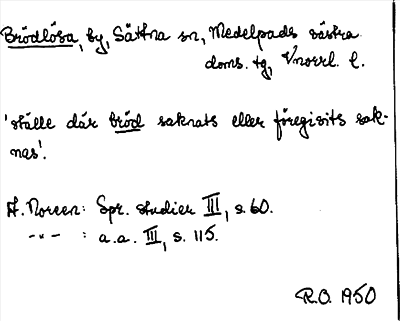 Brödlösa, by, Sättna sn, Medelpads västra
doms. tg, Vnorrl. l.
'ställe där bröd saknats eller föregivits sak-
nas'.
A. Noreen: Spr. studier III, s. 60.
-"- : a.a. III, s. 115.
R.O. 1950